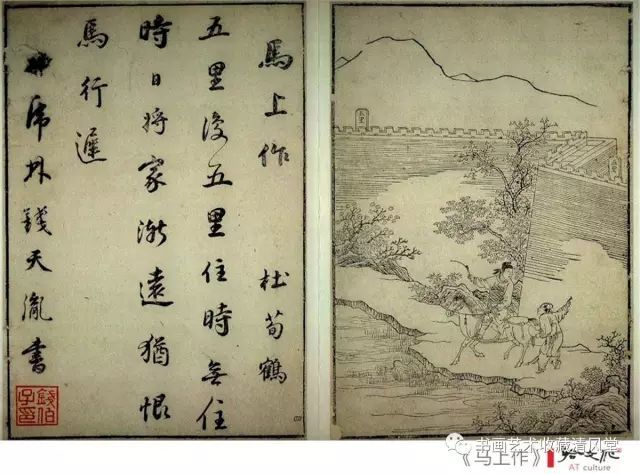 馬上作 杜荀鶴
五里復五里住時無住
時日將家漸遠猶恨
馬行遲
虎林錢天胤書
錢伯子印
书画艺术收藏清风堂
《马上作》
AT culture